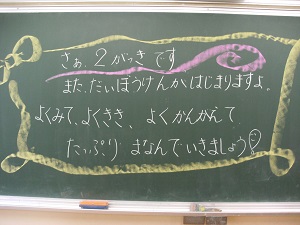 さぁ、2がっきです
また、だいぼうけんがはじまりますよ。
よくみて、よくきき、よくかんがえて、
たっぷりまなんでいきましょう